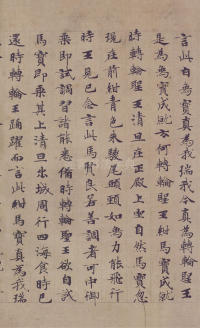 言此白象寶真為我瑞我今真為轉輪聖王
是為象寶成就云何轉輪聖王紺馬寶成就
時轉輪聖王清旦在正殿上坐自然馬寶忽
現在前紺青色朱髦尾頭頸如象力能飛行
時王見已念言此馬賢良若善調者可中御
乘即試調習諸能悉備時轉輪聖王欲自試
馬寶即乘其上清旦出城周行四海食時已
還時轉輪王踊躍而言此紺馬寶真為我瑞